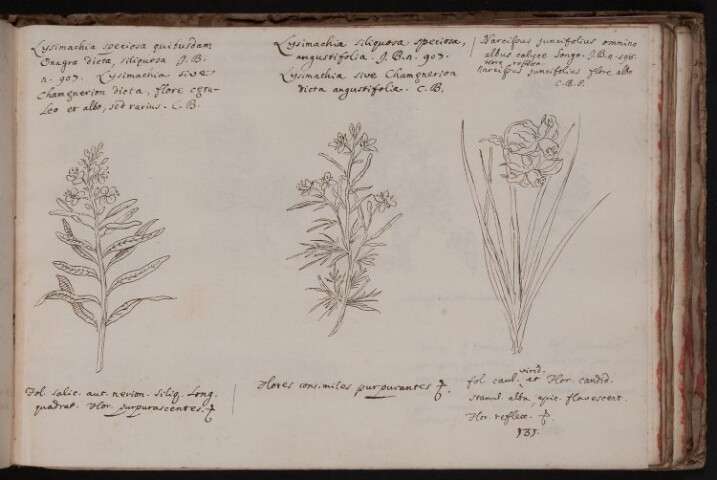 Lysimachia speciosa quibusdam
Onagra dicta, siliquosa J.B.
n. 907. Lysimachia sive
Chamænerion dicta, flore cæru-
leo et albo, sed rarius. C.B.
Lysimachia siliquosa speciosa,
angustifolia. J.B.n. 907.
Lysimachia sive Chamænerion
dicta angustifolia. C.B.
Narcissus juncifolius omnino
albus calyce longo. J.B.n.
flore reflexo
Narcissus juncifolius flore albo
C.B.P.
Fol. salic. aut nerion. siliq. long.
quadrat. Flor. purpurascentes.
Flores consimiles purpurantes
virid.
fol. caul. at Flor. candid.
stamul. alba apic. flavescent.
Flor. reflex.
131.